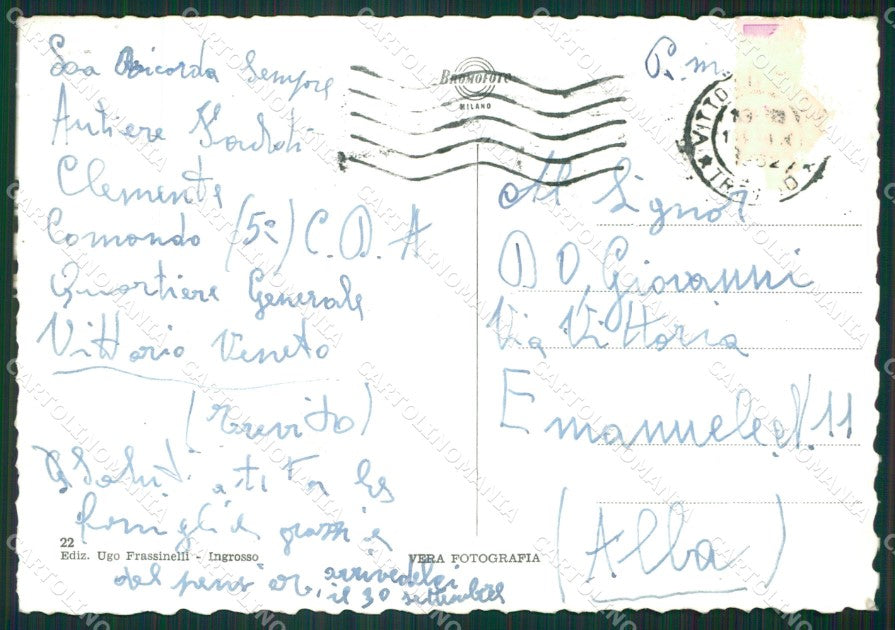 Ricorda Sempre
Autiere
Clemente
Comando (5º) C. D. A
Quartiere Generale
Vittorio Veneto
(Treviso)
Saluti a tutta la
famiglia grazie
del pensier, arrivedelci
il 30 settembre
22
Ediz. Ugo Frassinelli - Ingrosso
VERA FOTOGRAFIA
BROMOFOTO
MILANO
P. m
VITTO
Al Signor
D O, Giovanni
Via Vittoria
Emanuele N. 11
(Alba)
CARTOLINOMANIA